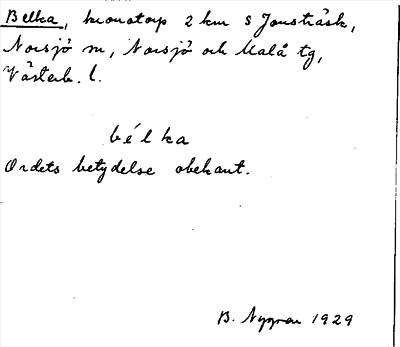 Belka, kronotorp 2 km S Jonsträsk,
Norsjö sn, Norsjö och Malå tg,
Västerb. l.
bélka
Ordets betydelse obekant.
B. Nygren 1929